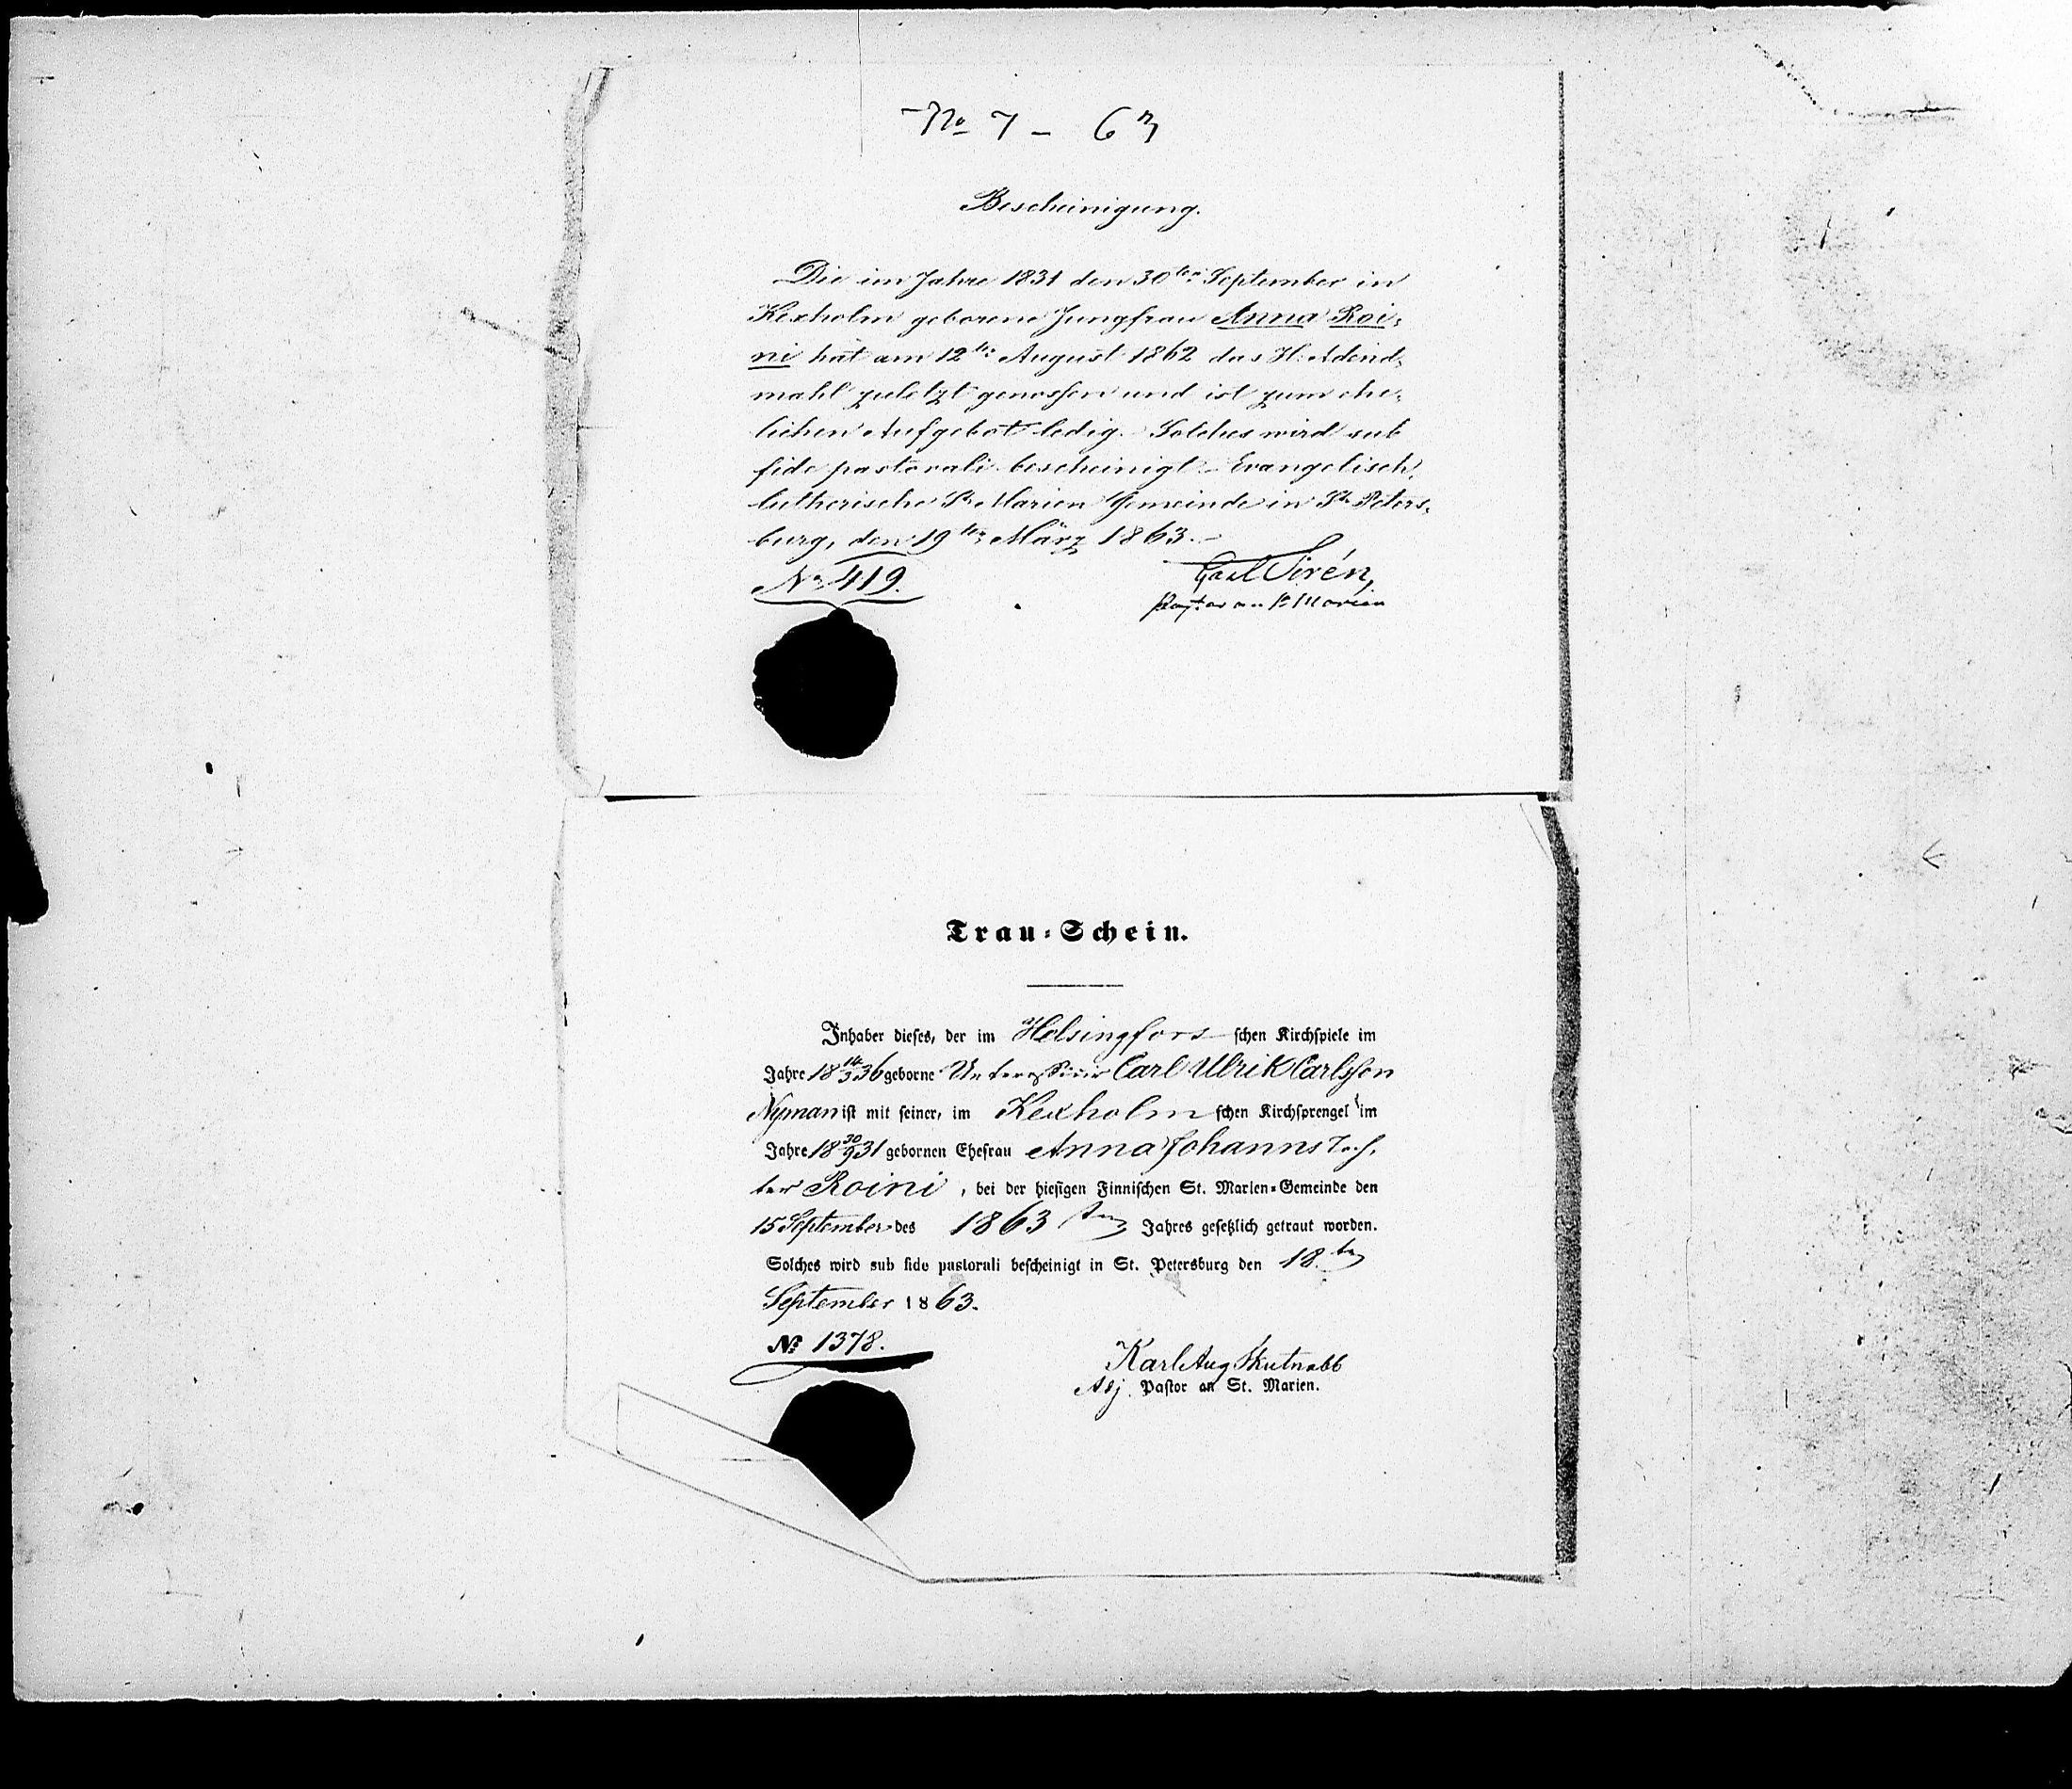 No 7 - 63
Bescheinigung.
Die im Jahre 1831 den 30ten September in
Kexholm geborene Jungfrau Anna Roi-
ni hat am 12ten August 1862 das H. Abend-
mahl zuletzt genossen und ist zum ehe-
lichen Aufgebot ledig. Solches wird sub
fide pastorali bescheinigt. Evangelisch-
lutherische St. Marien Gemeinde in St. Peters-
burg, den 19ten März 1863.-
No 419.
Carl Sirén,
Pastor an St Marien
Trau-Schein.
Inhaber dieses, der im Helsingfors schen Kirchspiele im
Jahre 18 14/3 36 geborne Unteroffizier Carl Ulrik Carlsson
Nyman ist mit seiner, im Kexholm schen Kirchsprengel im
Jahre 18 30/9 31 gebornen Ehefrau Anna Johanns Toch-
ter Roini, bei der hiesigen Finnischen St. Marien-Gemeinde den
15 September des 1863 ten Jahres gesetzlich getraut worden.
Solches wird sub fide pastorali bescheinigt in St. Petersburg den 18.ten
September 1863.
No 1378.
Karl Aug Skutnabb
Adj. Pastor an St. Marien.